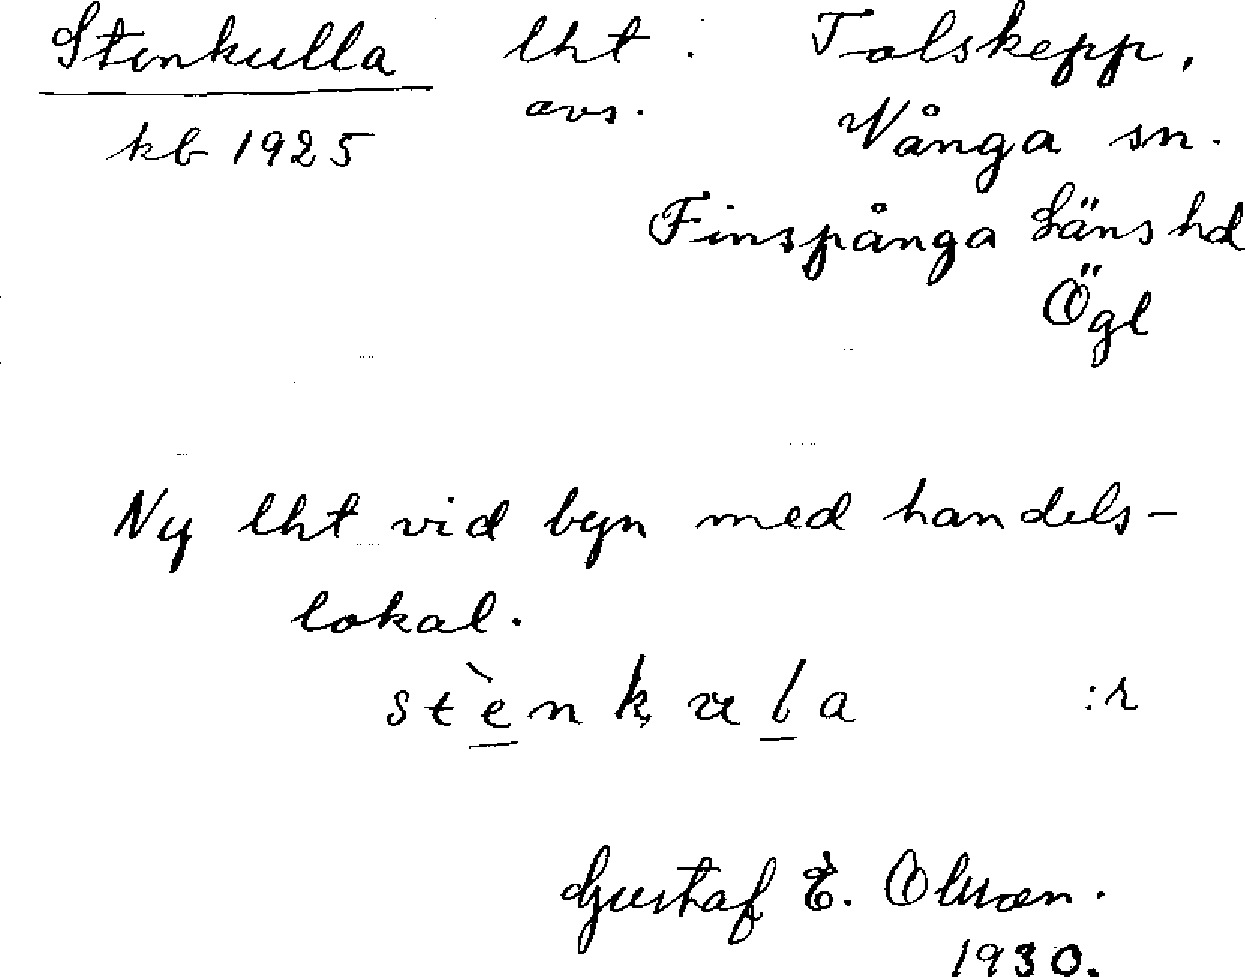 Stenkulla lht : Tolskepp,
kb 1925 avs. Vånga sn.
Finspånga Läns hd
Ögl
Ny lht vid byn med handels-
lokal.
stènkula :r
Gustaf E. Olsson.
1930.